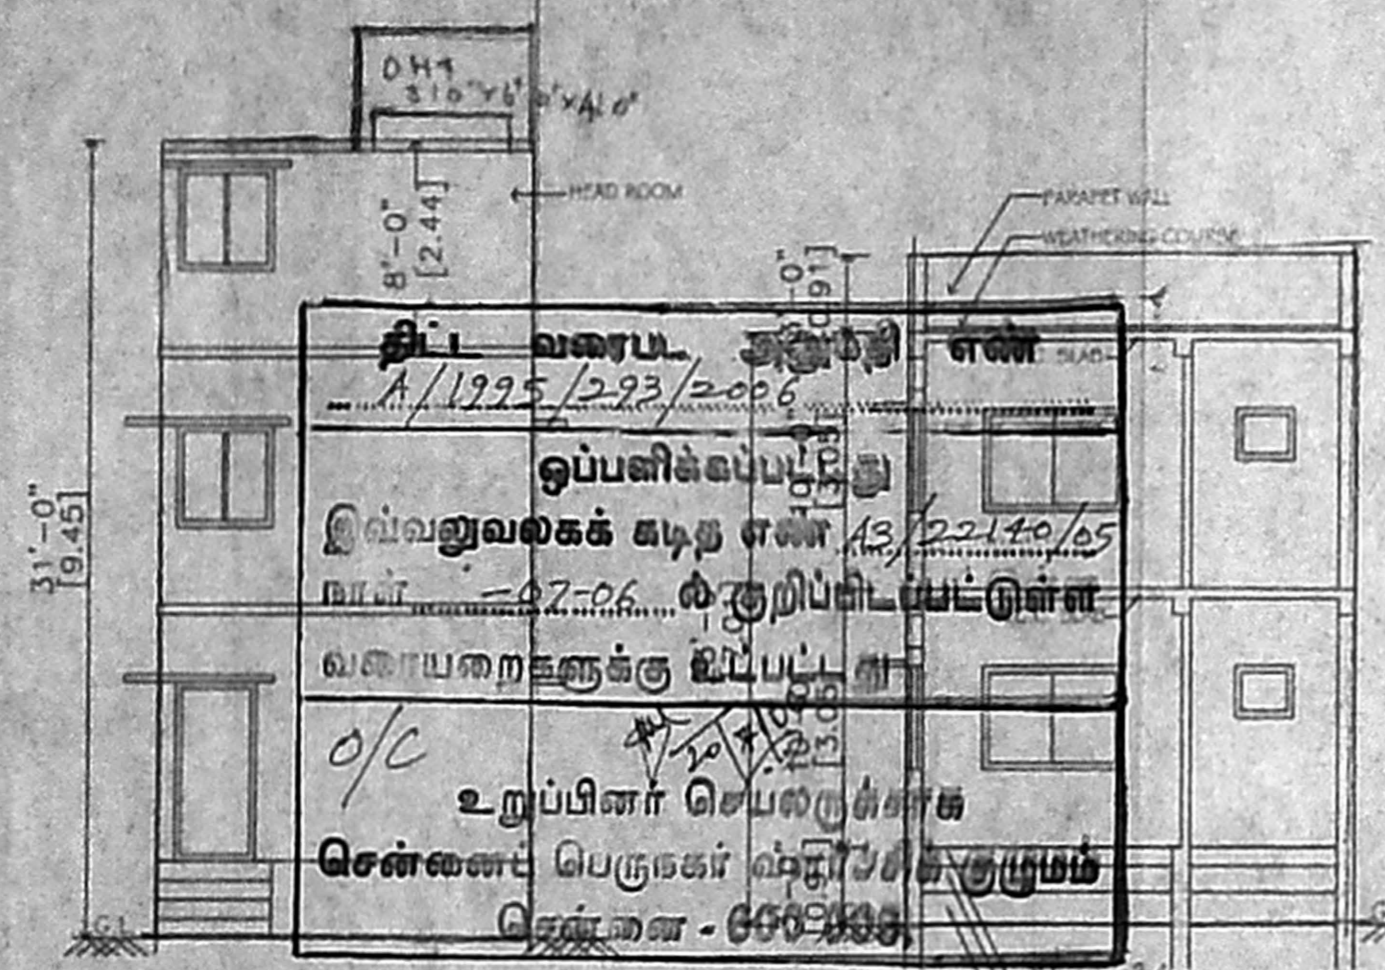 OH4
3'0"x6'0"x4'0"
HEAD ROOM
8'-0"
[2.44]
PARAPET WALL
WEATHERING COURSE
31'-0"
[9.45]
திட்ட வரைபட அனுமதி எண்
A/1995/293/2006
SLAB
ஒப்பளிக்கப்பட்டது
இவ்வலுவலகக் கடித எண் A3/22140/05
நாள் -07-06 ல் குறிப்பிடப்பட்டுள்ள
வரையறைகளுக்கு உட்பட்டது
[3.05]
O/C
உறுப்பினர் செயலருக்காக
சென்னைப் பெருநகர் வளர்ச்சிக் குழுமம்
சென்னை - 600 008.
G.L